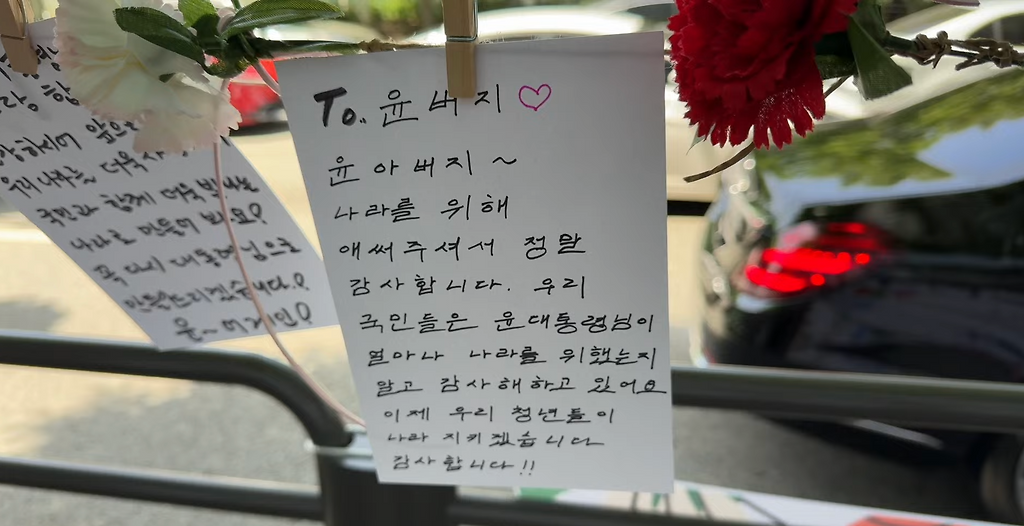 To. 윤버지 ♡
윤아버지 ~
나라를 위해
애써주셔서 정말
감사합니다. 우리
국민들은 윤대통령님이
얼마나 나라를 위했는지
알고 감사해하고 있어요
이제 우리 청년들이
나라 지키겠습니다
감사합니다!!
앞으로
우리 나라는 더욱
국민과 함께 더욱
나라로 만들어 봐요!
꼭 다시 대통령님으로
만들어드리겠습니다.!
윤~어게인!